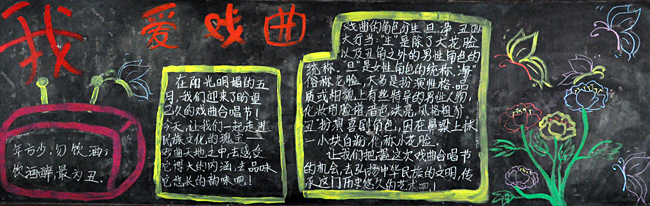 我爱戏曲
年方少,勿饮酒;
饮酒醉,最为丑.
在阳光明媚的五
月,我们迎来了盼望
已久的戏曲合唱节!
今天,让我们一起走进
民族文化的瑰宝
天地之中,去感受
它博大的内涵,去品味
它悠长的韵味吧!
戏曲的角色分生、旦、净、丑四
大行当."生"是除了大花脸
以及丑角之外的男性角色的
统称."旦"是女性角色的统称."净"
俗称花脸,大多是扮演性格、品
质或相貌上有些特异的男性人物,
化妆用脸谱,音色洪亮,风格粗犷.
丑扮演喜剧角色,因在鼻梁上抹
一小块白粉,俗称小花脸.
让我们把握这次戏曲合唱节
的机会,去弘扬中华民族的文明,传
承这门历史悠久的艺术吧!